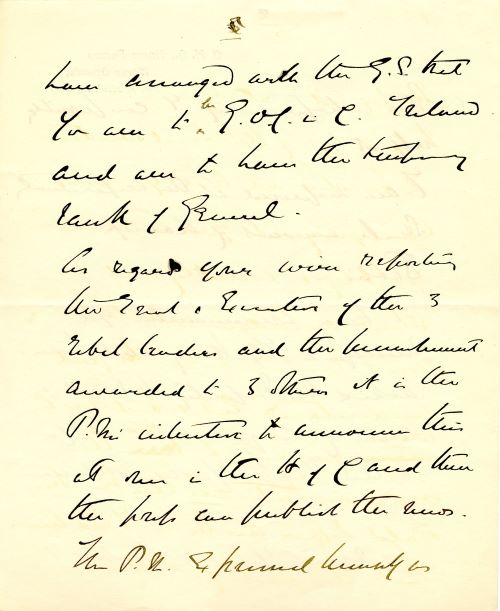 have arranged with the G.S. that
You are to be G.O.C. in C. Ireland
and are to have the temporary
rank of General.
As regards your wire reporting
the Trial & Execution of the 3
rebel leaders and the punishment
awarded to 3 others it is the
P.M's intention to announce this
at once in the H of C and then
the press can publish the news.
The P.M. expressed himself as